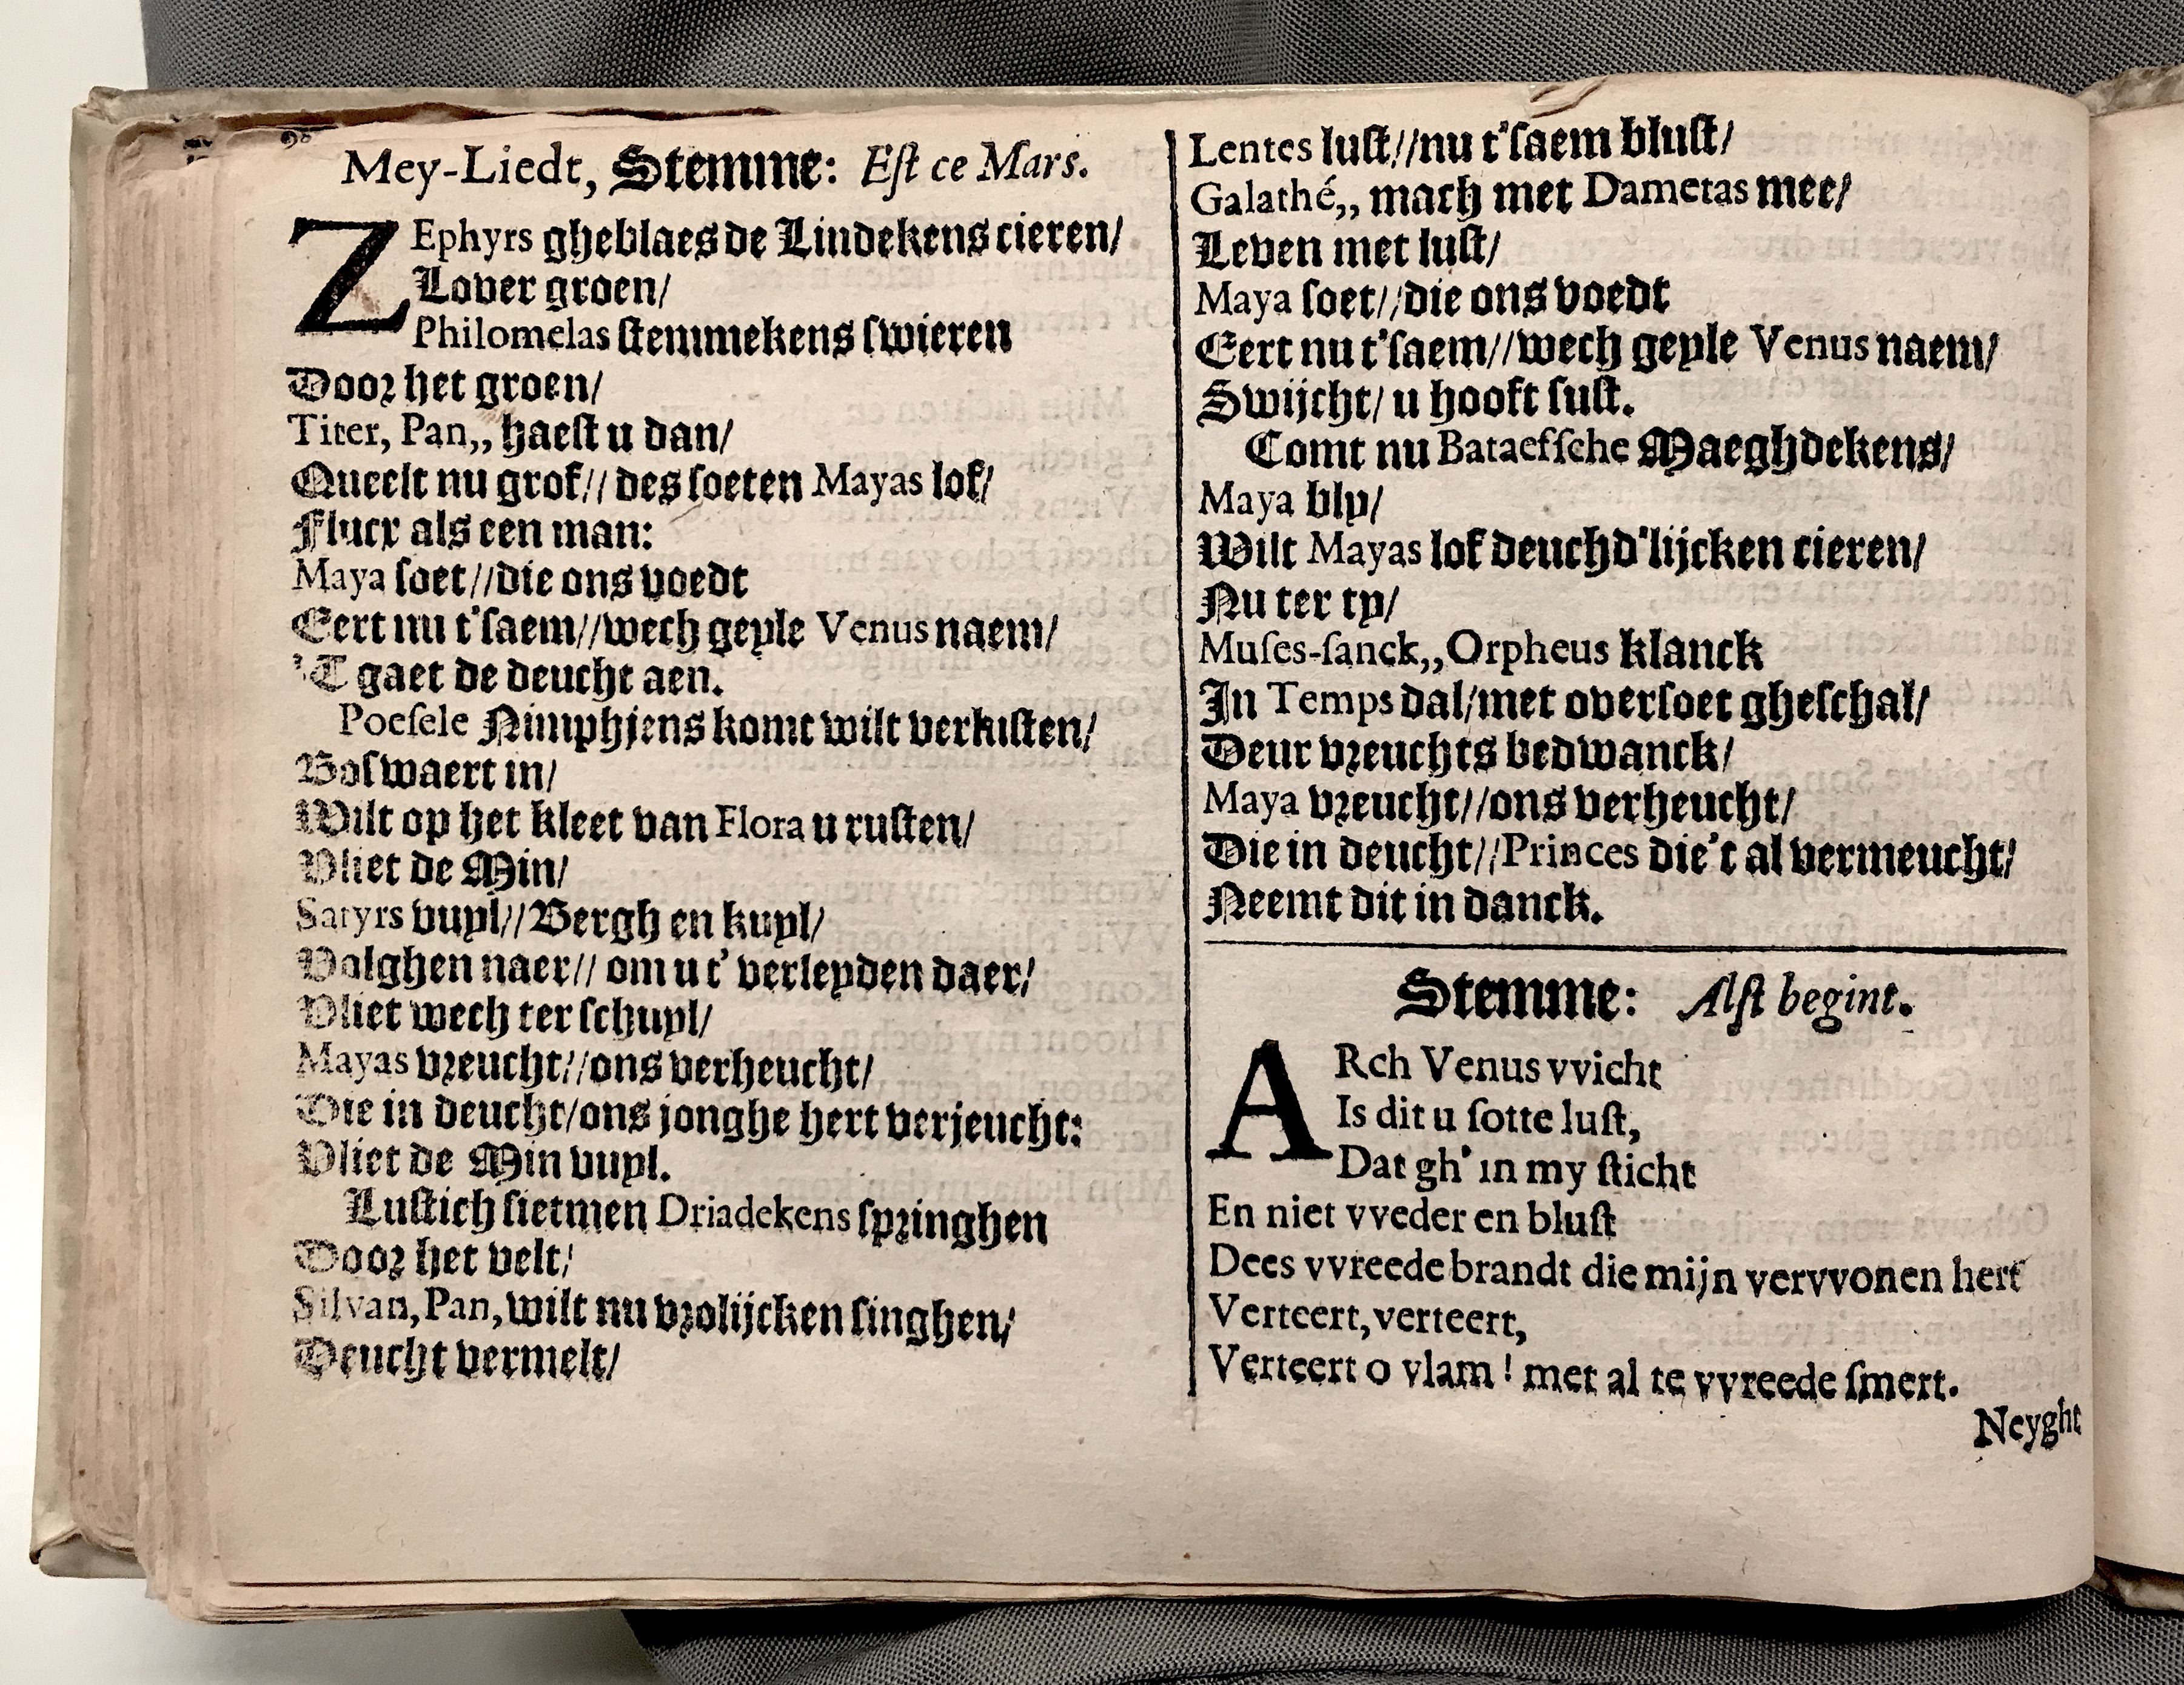 98
Mey-Liedt, Stemme: Eſt ce Mars.
ZEphyrs gheblaes de Lindekens cieren/
Lover groen/
Philomelas ſtemmekens ſwieren
Door het groen/
Titer, Pan,, haeſt u dan/
Queelt nu grof// des ſoeten Mayas lof/
Flucx als een man:
Maya ſoet//die ons voedt
Eert nu t'ſaem//wech geyle Venus naem/
'T gaet de deucht aen.
Poeſele Nimphjens komt wilt verluſten/
Boſwaert in/
Wilt op het kleet van Flora u ruſten/
Vliet de Min/
Satyrs vuyl//Bergh en kuyl/
Volghen naer// om u t' verleyden daer/
Vliet wech ter ſchuyl/
Mayas vreucht//ons verheucht/
Die in deucht/ons jonghe hert verjeucht:
Vliet de Min vuyl.
Luſtich ſietmen Driadekens ſpringhen
Door het velt/
Silvan, Pan, wilt nu vrolijcken ſinghen/
Deucht vermelt/
Lentes luſt//nu t'ſaem bluſt/
Galathé,, mach met Dametas mee/
Leven met luſt/
Maya ſoet//die ons voedt
Eert nu t'ſaem//wech geyle Venus naem/
Swijcht/ u hooft ſuſt.
Comt nu Bataefſche Maeghdekens/
Maya bly/
Wilt Mayas lof deuchd'lijcken cieren/
Nu ter ty/
Muſes-ſanck,,Orpheus klanck
In Temps dal/met overſoet gheſchal/
Deur vreuchts bedwanck/
Maya vreucht//ons verheucht/
Die in deucht//Princes die't al vermeucht/
Neemt dit in danck.
Stemme: Alſt begint.
ARch Venus vvicht
Is dit u ſotte luſt,
Dat gh' in my ſticht
En niet vveder en bluſt
Dees vvreede brandt die mijn vervvonen hert
Verteert, verteert,
Verteert o vlam! met al te vvreede ſmert.
Neyght